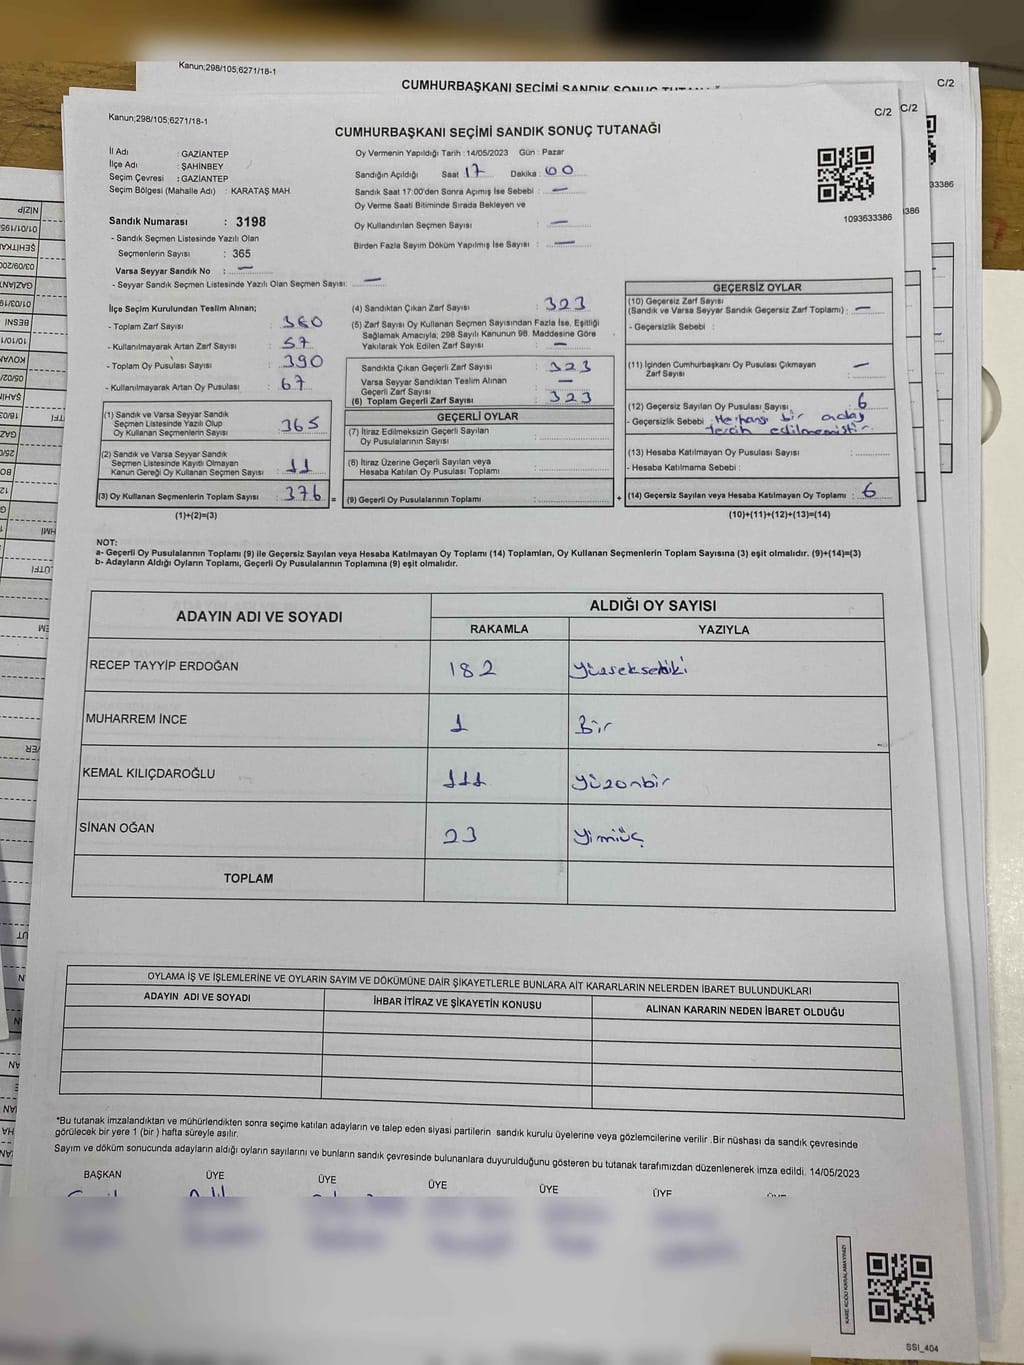 Kanun;298/105;6271/18-1
CUMHURBAŞKANI SEÇİMİ SANDIK SONUÇ
C/2
Kanun;298/105;6271/18-1
C/2
C/2
CUMHURBAŞKANI SEÇİMİ SANDIK SONUÇ TUTANAĞI
İl Adı : GAZİANTEP
İlçe Adı : ŞAHİNBEY
Seçim Çevresi : GAZİANTEP
Seçim Bölgesi (Mahalle Adı) : KARATAŞ MAH.
Sandık Numarası : 3198
- Sandık Seçmen Listesinde Yazılı Olan
Seçmenlerin Sayısı : 365
Varsa Seyyar Sandık No : —
- Seyyar Sandık Seçmen Listesinde Yazılı Olan Seçmen Sayısı: —
Oy Vermenin Yapıldığı Tarih :14/05/2023 Gün : Pazar
Sandığın Açıldığı Saat 17 Dakika : 00
Sandık Saat 17:00'den Sonra Açımış İse Sebebi : —
Oy Verme Saati Bitiminde Sırada Bekleyen ve
Oy Kullandırılan Seçmen Sayısı : —
Birden Fazla Sayım Döküm Yapılmış İse Sayısı : —
1093633386
33386
386
İlçe Seçim Kurulundan Teslim Alınan;
- Toplam Zarf Sayısı : 360
- Kullanılmayarak Artan Zarf Sayısı : 57
- Toplam Oy Pusulası Sayısı : 390
- Kullanılmayarak Artan Oy Pusulası : 67
(1) Sandık ve Varsa Seyyar Sandık
Seçmen Listesinde Yazılı Olup
Oy Kullanan Seçmenlerin Sayısı : 365
(2) Sandık ve Varsa Seyyar Sandık
Seçmen Listesinde Kayıtlı Olmayan
Kanun Gereği Oy Kullanan Seçmen Sayısı : 11
(3) Oy Kullanan Seçmenlerin Toplam Sayısı : 376 =
(1)+(2)=(3)
(4) Sandıktan Çıkan Zarf Sayısı : 323
(5) Zarf Sayısı Oy Kullanan Seçmen Sayısından Fazla İse, Eşitliği
Sağlamak Amacıyla; 298 Sayılı Kanunun 98. Maddesine Göre
Yakılarak Yok Edilen Zarf Sayısı : —
Sandıkta Çıkan Geçerli Zarf Sayısı : 323
Varsa Seyyar Sandıktan Teslim Alınan
Geçerli Zarf Sayısı : —
(6) Toplam Geçerli Zarf Sayısı : 323
GEÇERLİ OYLAR
(7) İtiraz Edilmeksizin Geçerli Sayılan
Oy Pusulalarının Sayısı :
(8) İtiraz Üzerine Geçerli Sayılan veya
Hesaba Katılan Oy Pusulası Toplamı :
(9) Geçerli Oy Pusulalarının Toplamı : +
GEÇERSİZ OYLAR
(10) Geçersiz Zarf Sayısı
(Sandık ve Varsa Seyyar Sandık Geçersiz Zarf Toplamı) : —
- Geçersizlik Sebebi :
(11) İçinden Cumhurbaşkanı Oy Pusulası Çıkmayan
Zarf Sayısı : —
(12) Geçersiz Sayılan Oy Pusulası Sayısı : 6
- Geçersizlik Sebebi : Herhangi bir aday
tercih edilmemiştir.
(13) Hesaba Katılmayan Oy Pusulası Sayısı :
- Hesaba Katılmama Sebebi :
(14) Geçersiz Sayılan veya Hesaba Katılmayan Oy Toplamı : 6
(10)+(11)+(12)+(13)=(14)
NOT:
a- Geçerli Oy Pusulalarının Toplamı (9) ile Geçersiz Sayılan veya Hesaba Katılmayan Oy Toplamı (14) Toplamları, Oy Kullanan Seçmenlerin Toplam Sayısına (3) eşit olmalıdır. (9)+(14)=(3)
b- Adayların Aldığı Oyların Toplamı, Geçerli Oy Pusulalarının Toplamına (9) eşit olmalıdır.
ADAYIN ADI VE SOYADI
ALDIĞI OY SAYISI
RAKAMLA YAZIYLA
RECEP TAYYİP ERDOĞAN 182 Yüzseksebiki
MUHARREM İNCE 1 Bir
KEMAL KILIÇDAROĞLU 111 Yüzonbir
SİNAN OĞAN 23 Yimiüç
TOPLAM
OYLAMA İŞ VE İŞLEMLERİNE VE OYLARIN SAYIM VE DÖKÜMÜNE DAİR ŞİKAYETLERLE BUNLARA AİT KARARLARIN NELERDEN İBARET BULUNDUKLARI
ADAYIN ADI VE SOYADI İHBAR İTİRAZ VE ŞİKAYETİN KONUSU ALINAN KARARIN NEDEN İBARET OLDUĞU
*Bu tutanak imzalandıktan ve mühürlendikten sonra seçime katılan adayların ve talep eden siyasi partilerin sandık kurulu üyelerine veya gözlemcilerine verilir .Bir nüshası da sandık çevresinde
görülecek bir yere 1 (bir ) hafta süreyle asılır.
Sayım ve döküm sonucunda adayların aldığı oyların sayılarını ve bunların sandık çevresinde bulunanlara duyurulduğunu gösteren bu tutanak tarafımızdan düzenlenerek imza edildi. 14/05/2023
BAŞKAN ÜYE ÜYE ÜYE ÜYE ÜYE
KARE KODU KARALAMAYINIZ!
SSI_404